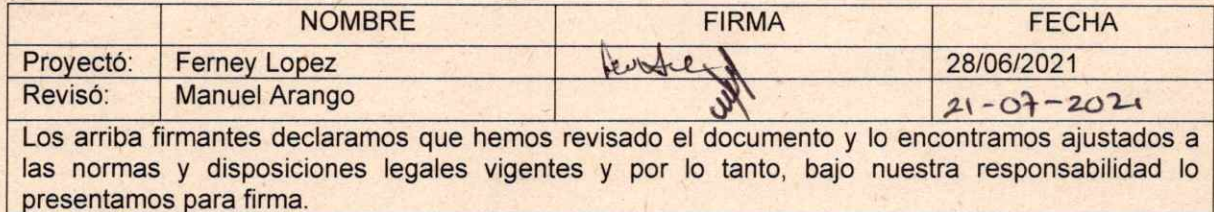 NOMBRE FIRMA FECHA
Proyectó: Ferney Lopez 28/06/2021
Revisó: Manuel Arango 21-07-2021
Los arriba firmantes declaramos que hemos revisado el documento y lo encontramos ajustados a
las normas y disposiciones legales vigentes y por lo tanto, bajo nuestra responsabilidad lo
presentamos para firma.